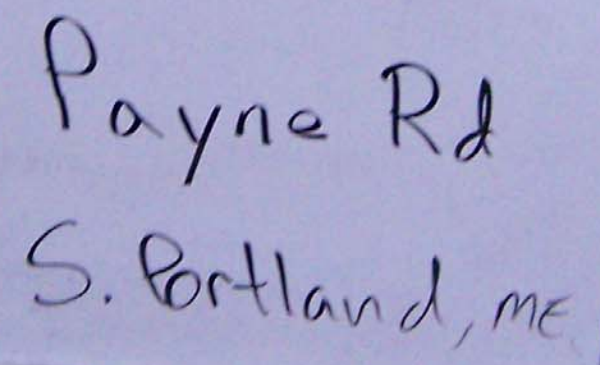 Payne Rd
S. Portland, ME